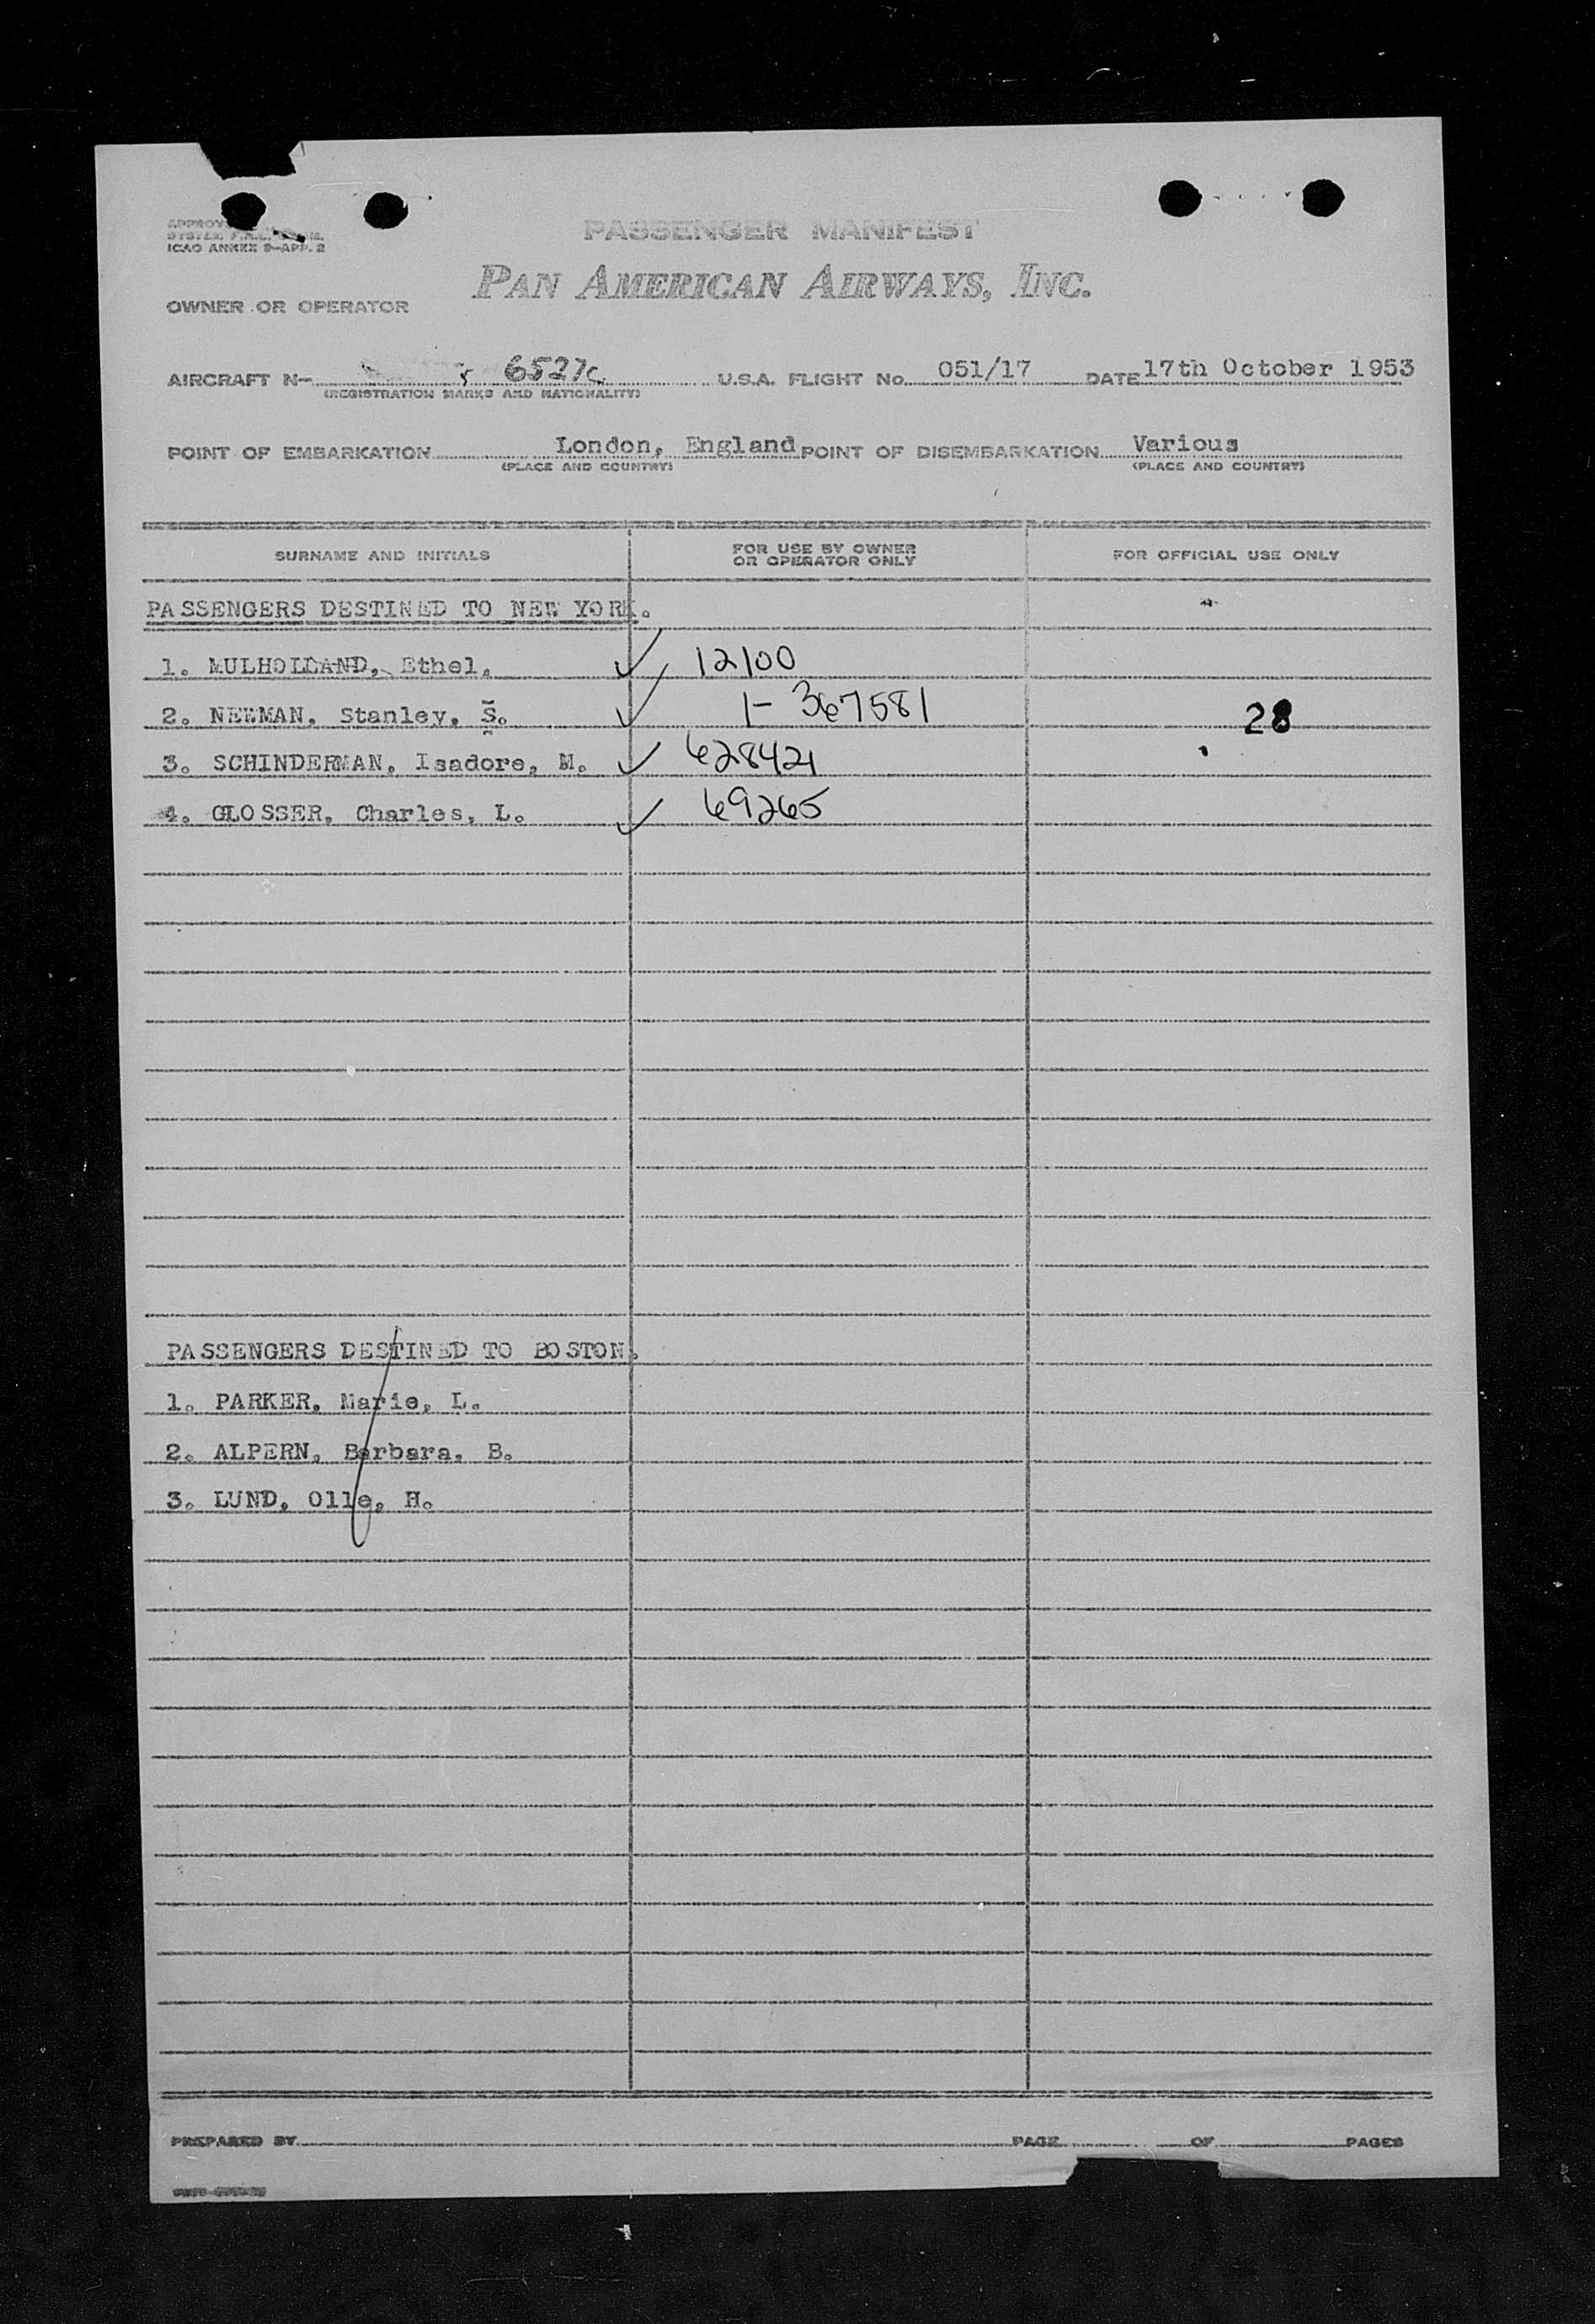 PASSENGER MANIFEST
ICAO ANNEX 9-APP. 2
PAN AMERICAN AIRWAYS, INC.
OWNER OR OPERATOR
AIRCRAFT N- 6527C U.S.A. FLIGHT No. 051/17 DATE 17th October 1953
(REGISTRATION MARKS AND NATIONALITY)
POINT OF EMBARKATION London, England POINT OF DISEMBARKATION Various
(PLACE AND COUNTRY) (PLACE AND COUNTRY)
SURNAME AND INITIALS FOR USE BY OWNER OR OPERATOR ONLY FOR OFFICIAL USE ONLY
PASSENGERS DESTINED TO NEW YORK.
1. MULHOLLAND, Ethel. ✓ 12100
2. NEWMAN, Stanley, S. ✓ 1-367581 28
3. SCHINDERMAN, Isadore, M. ✓ 628421
4. GLOSSER, Charles, L. ✓ 69265
PASSENGERS DESTINED TO BOSTON.
1. PARKER, Marie, L.
2. ALPERN, Barbara, B.
3. LUND, Olle, H.
PREPARED BY PAGE OF PAGES